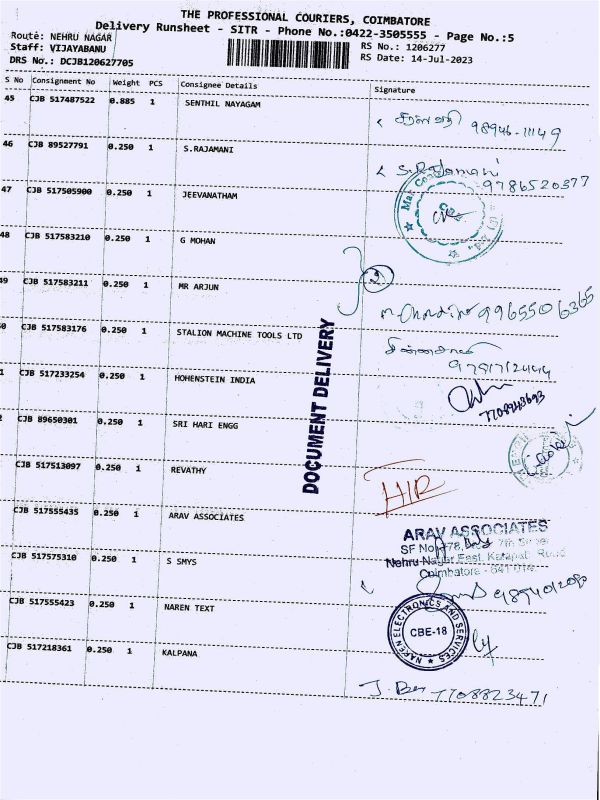 THE PROFESSIONAL COURIERS, COIMBATORE
Delivery Runsheet - SITR - Phone No.:0422-3505555 - Page No.:5
Route: NEHRU NAGAR
Staff: VIJAYABANU
DRS No.: DCJB120627705
RS No.: 1206277
RS Date: 14-Jul-2023
S No Consignment No Weight PCS Consignee Details Signature
45 CJB 517487522 0.885 1 SENTHIL NAYAGAM
98946-11149
46 CJB 89527791 0.250 1 S.RAJAMANI
9786520377
47 CJB 517505900 0.250 1 JEEVANATHAM
48 CJB 517583210 0.250 1 G MOHAN
2
49 CJB 517583211 0.250 1 MR ARJUN
9965506365
0 CJB 517583176 0.250 1 STALION MACHINE TOOLS LTD
1 CJB 517233254 0.250 1 HOHENSTEIN INDIA
7708948693
2 CJB 89650301 0.250 1 SRI HARI ENGG
CJB 517513097 0.250 1 REVATHY
H/R
CJB 517555435 0.250 1 ARAV ASSOCIATES
ARAV ASSOCIATES
Coimbatore - 641 014
CJB 517575310 0.250 1 S SMYS
CJB 517555423 0.250 1 NAREN TEXT
NAREN ELECTRONICS AND SERVICES
CBE-18
CJB 517218361 0.250 1 KALPANA
7708823471
DOCUMENT DELIVERY